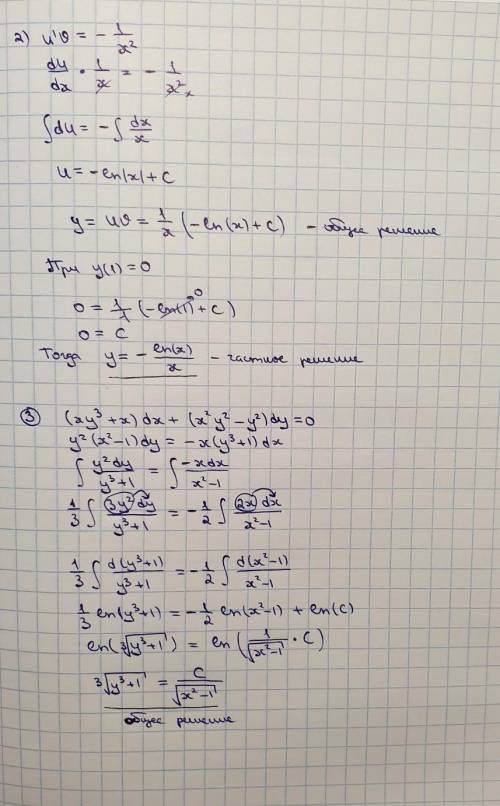 2) u'v = - 1/x²
du/dx · 1/x = - 1/x²
∫du = -∫ dx/x
u = -ln|x| + C
y = uv = 1/x (-ln(x) + C) - общее решение
При y(1) = 0
0 = 1/1 (-ln(1) + C) 0
0 = C
Тогда y = - ln(x)/x - частное решение
③ (xy³ + x) dx + (x²y² - y²) dy = 0
y² (x² - 1) dy = -x (y³ + 1) dx
∫ y² dy/(y³ + 1) = ∫ -x dx/(x² - 1)
1/3 ∫ 3y² dy/(y³ + 1) = - 1/2 ∫ 2x dx/(x² - 1)
1/3 ∫ d(y³ + 1)/(y³ + 1) = - 1/2 ∫ d(x² - 1)/(x² - 1)
1/3 ln(y³ + 1) = - 1/2 ln(x² - 1) + ln(C)
ln(³√(y³ + 1)) = ln(1/√(x² - 1) · C)
³√(y³ + 1) = C/√(x² - 1)
общее решение